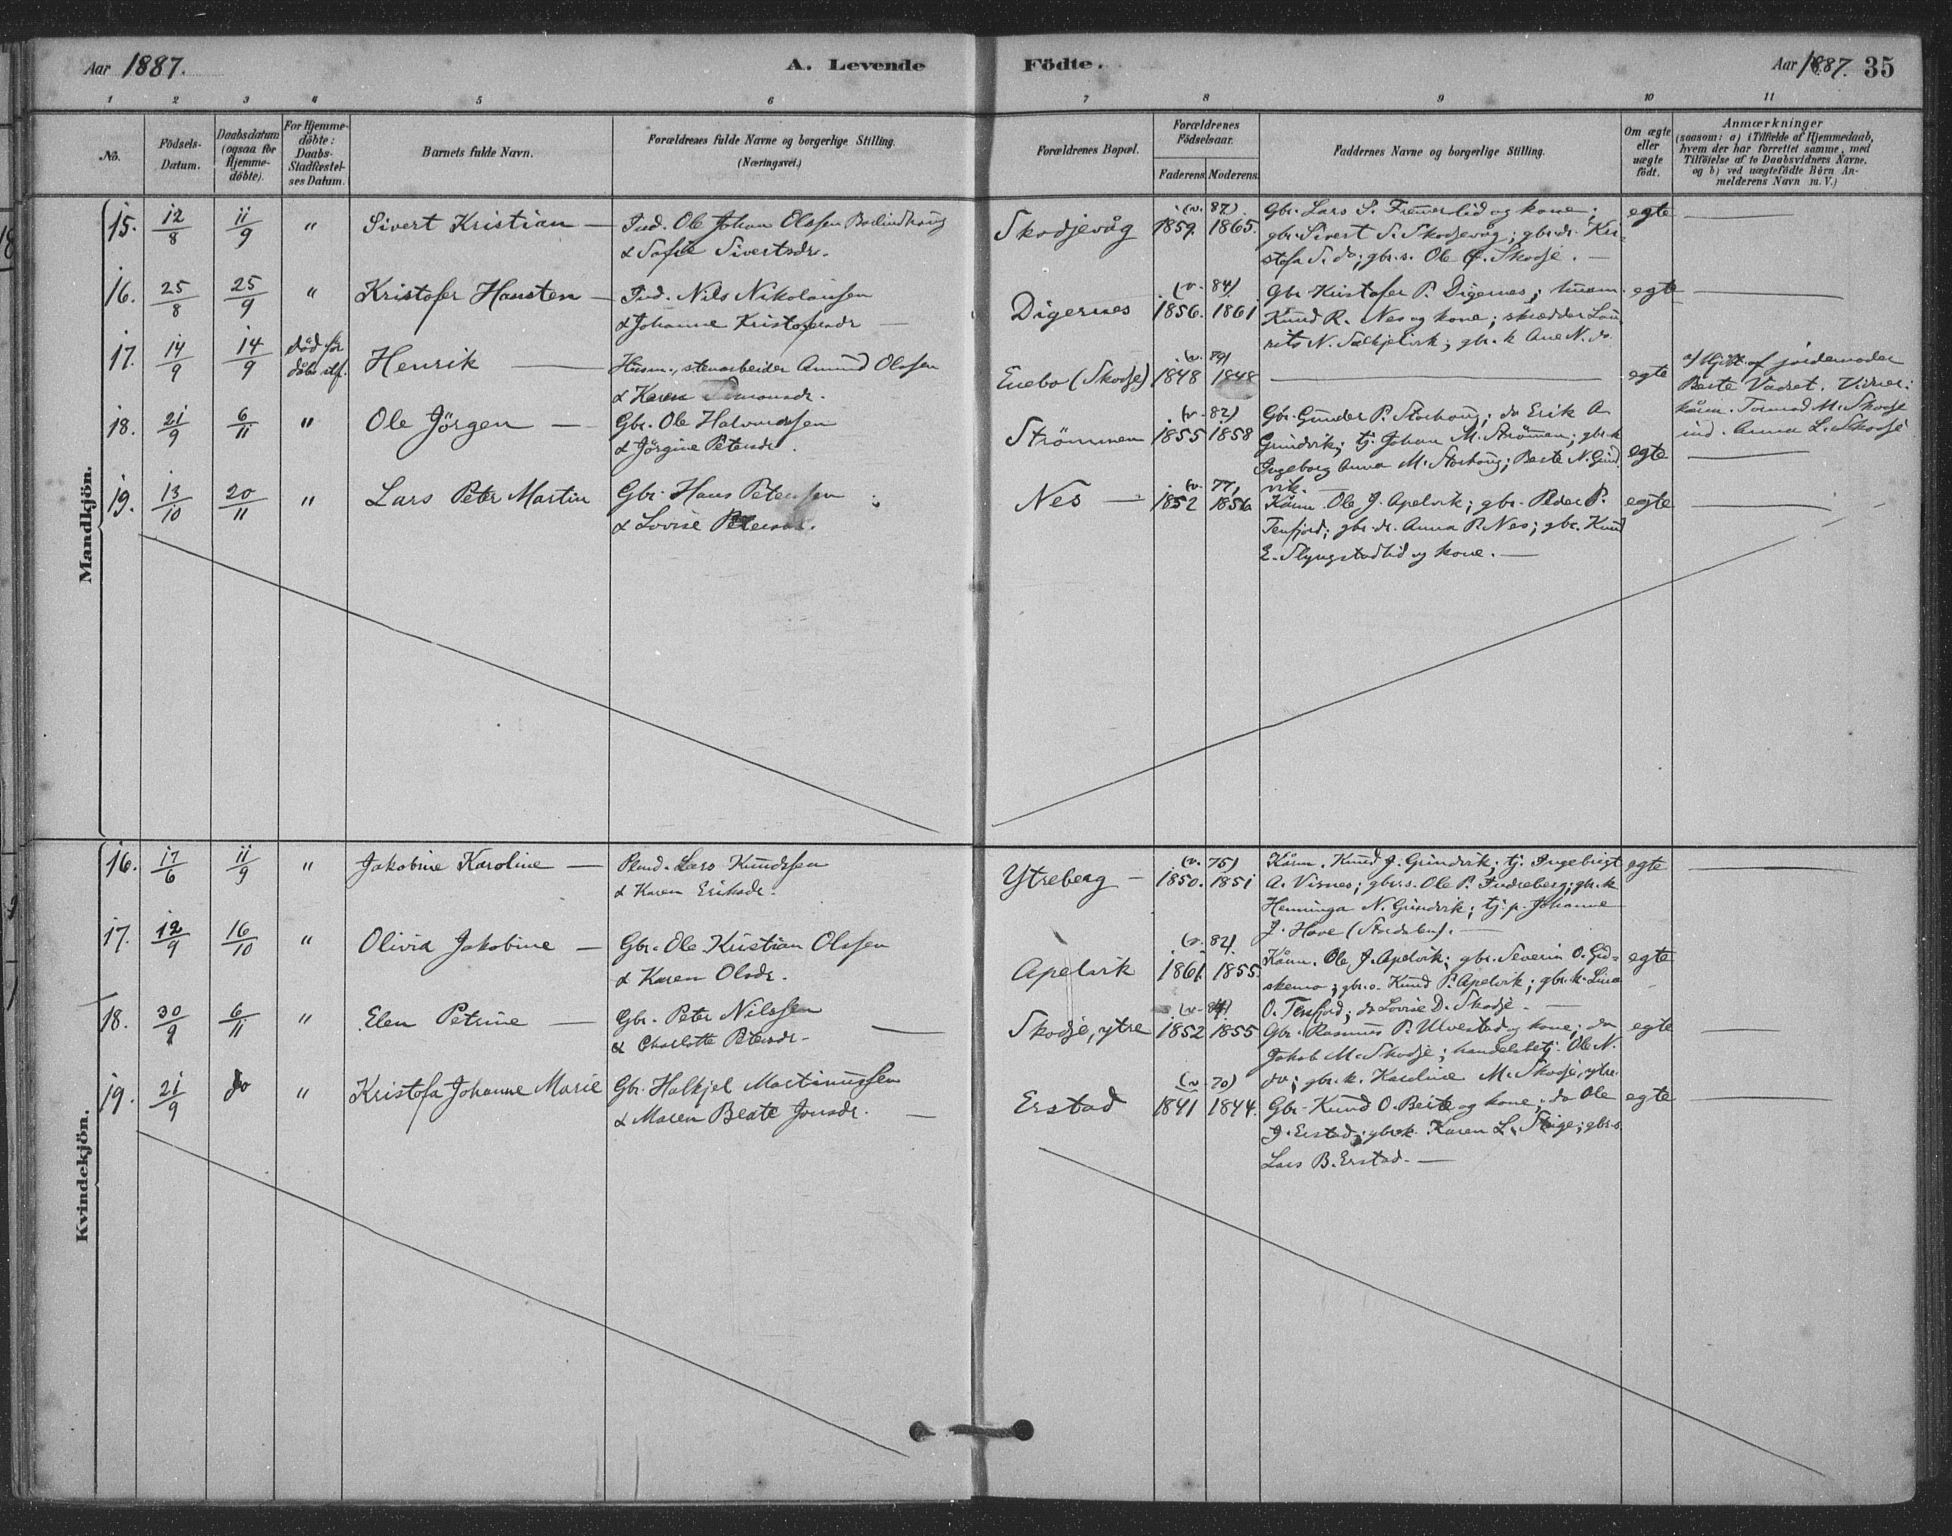 Aar 1887.
A. Levende
Födte.
Aar 1887. 35
1 2 3 4 5 6 7 8 9 10 11
No.
Födsels-
Datum.
Daabsdatum
(ogsaa for
Hjemme-
döbte).
For Hjemme-
döbte:
Daabs-
Stadfæstel-
ses Datum.
Barnets fulde Navn.
Forældrenes fulde Navne og borgerlige Stilling.
(Næringsvei.)
Forældrenes Bopæl.
Forældrenes
Födselsaar.
Faderens. Moderens.
Faddernes Navne og borgerlige Stilling.
Om ægte
eller
uægte
födt.
Anmærkninger
(saasom: a) i Tilfælde af Hjemmedaab,
hvem der har forrettet samme, med
Tilföielse af to Daabsvidners Navne,
og b) ved uægtefödte Börn An-
melderens Navn m. V.)
Mandkjön.
15. 12/8 11/9 " Sivert Kristian — Ind. Ole Johan Olssen
& Sofie Sivertsdr.
Skodjevåg (v. 87) 1859. 1865.
Gbr. Lars S. Fremerlid og kone;
gbr. Sivert S. Skodjevåg; gbr.dr. Kri-
stofa S. do; gbr.s. Ole Skodje. —
egte —
16. 25/8 25/9 " Kristofer Hansten — Ind. Nils Nikolaissen
& Johanne Kristofersdr —
Digernes (v. 84) 1856. 1861
Gbr. Kristofer P. Digernes;
Knud R. Nes og kone; skrædder Lau-
rits N. Solkjelvik; gbr. k Ane N. do.
egte —
17. 14/9 14/9 död for
Henrik — Husm., stenarbeider Amund Olssen
& Karen Simonsdr.
Enebo (Skodje) (v. 79) 1848 1848 —
egte
a) Hjdt. af jordemoder
Berte Vadset. Vidner:
kårm. Tormod M. Skodje
ind. Anna L. Skodje
18. 21/9 6/11 " Ole Jörgen — Gbr. Ole Halvardssen
& Jörgine Petersdr.
Strömmen (v. 82) 1855 1858
Gbr. Gunder P. Storhoug; do Erik A
Grindvik; tj. Johan M. Strömmen; gbr.k
Ingeborg Anna M. Storhoug; Berte N. Grind
vik. —
egte —
19. 13/10 20/11 " Lars Peter Martin Gbr. Hans Peterssen
& Lovise Petersdr.
Nes — (v. 77) 1852 1856
Kårm. Ole J. Apelvik; gbr. Peder P.
Tenfjord; gbr. dr. Anna P. Nes; gbr. Knud
E. Slyngstadlid og kone. —
egte —
Kvindekjön.
16. 17/6 11/9 " Jakobine Karoline — Lars Knudssen
& Karen Eriksdr.
Ytreberg — (v. 75) 1850. 1851
Kårm. Knud J. Grindvik; tj. Ingebrigt
A. Visnes; gbr.s. Ole P. Indreberg; gbr.k
Henninga N. Grindvik; tj. p. Johanne
J. Hove —
egte —
17. 12/9 16/10 " Olivia Jakobine — Gbr. Ole Kristian Olssen
& Karen Olsdr.
Apelvik (v. 82) 1861. 1855
Kårm. Ole J. Apelvik; gbr. Severin O. Gid-
skemo; gbr.s. Knud P. Apelvik; gbr.k. Lina
O. Tenfjord; do Lovise D. Skodje. —
egte —
18. 30/9 6/11 " Elen Petrine — Gbr. Peter Nilssen
& Charlotte Petersdr. —
Skodje, ytre 1852 1855
Gbr. Rasmus P. Ulvestad og kone; do
Jakob M. Skodje; handelsbetj. Ole N.
do; gbr. k. Karoline M. Skodje, ytre.
egte —
19. 21/9 do " Kristofa Johanne Marie Gbr. Halkjel Martinussen
& Maren Beate Jonsdr. —
Erstad (v. 70) 1841 1844.
Gbr. Knud O. Beite og kone; do Ole
J. Erstad; gbr.k. Karen L. Stige; gbr.s
Lars B. Erstad. —
egte —